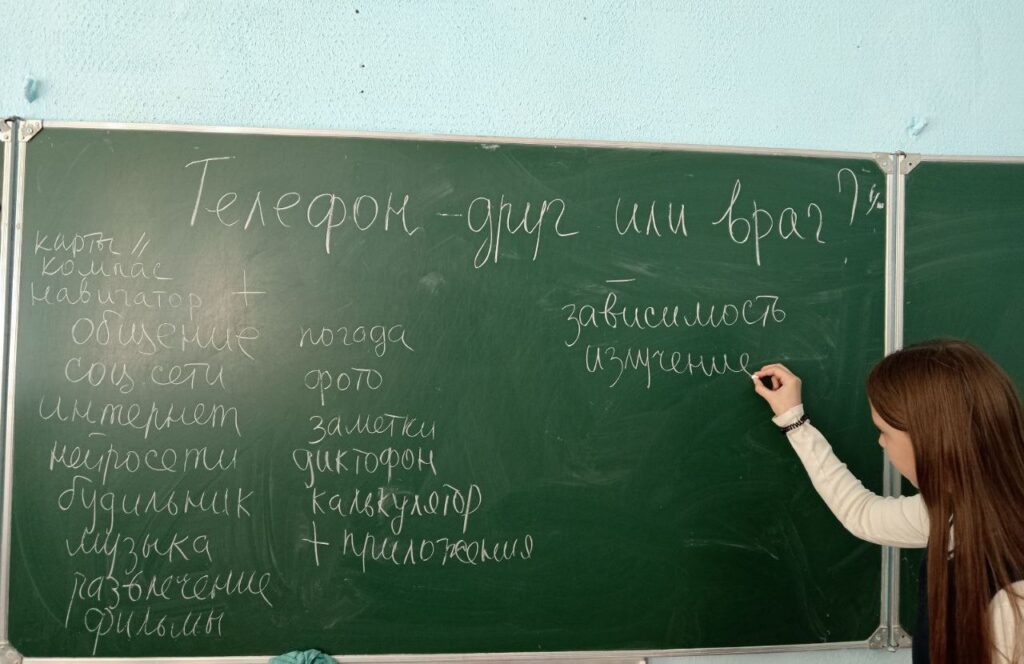 Телефон - друг или враг ?
карты
компас
навигатор +
общение
соц. сети
интернет
нейросети
будильник
музыка
развлечение
фильмы
погода
фото
заметки
диктофон
калькулятор
+ приложения
–
зависимость
излучение